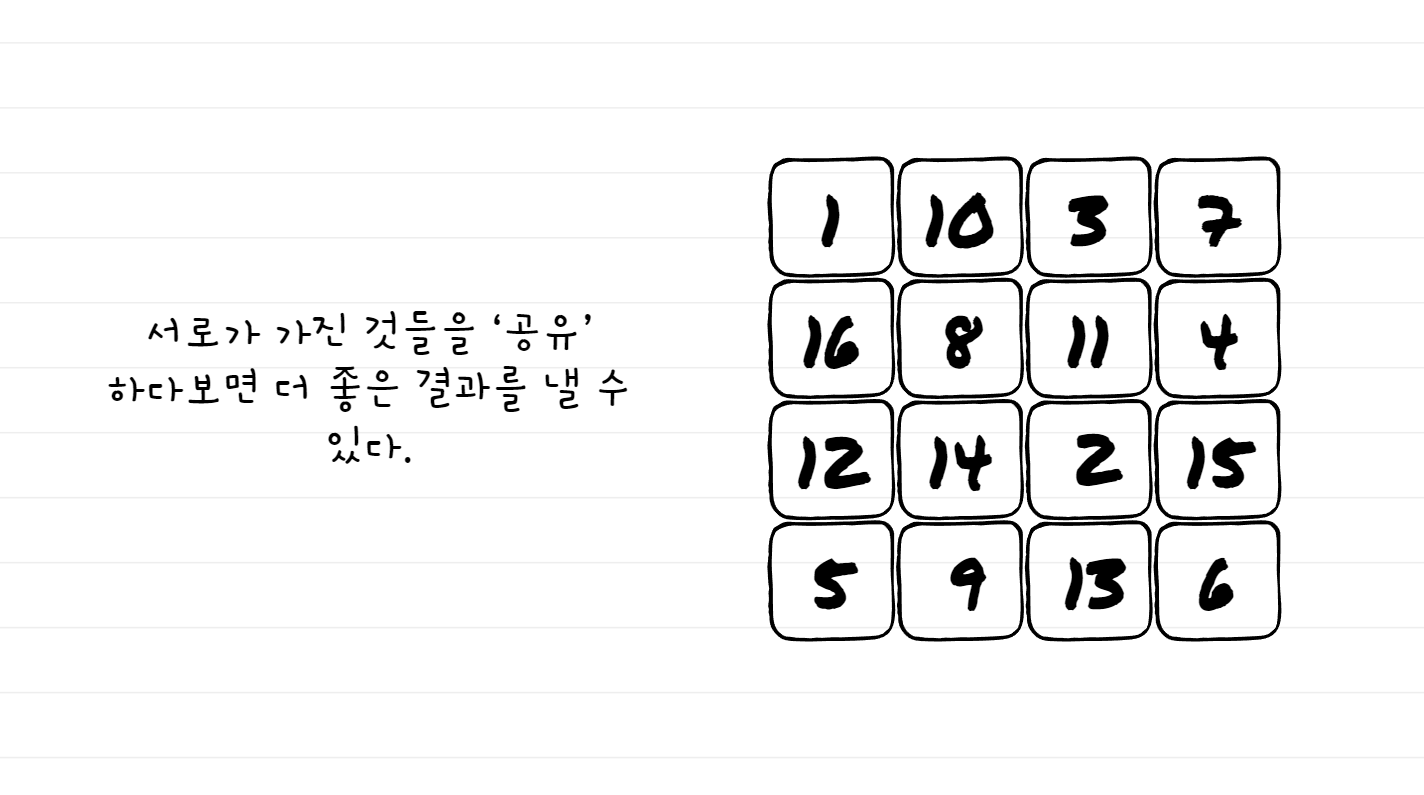 서로가 가진 것들을 ‘공유’
하다보면 더 좋은 결과를 낼 수
있다.
1 10 3 7
16 8 11 4
12 14 2 15
5 9 13 6